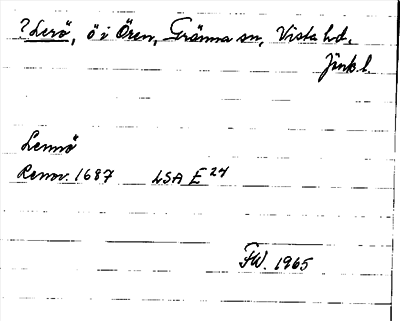 ?Lerö, ö i Ören, Gränna sn, Vista hd,
Jönk. l.
Lennö
Renov. 1687 LSA E 24
FW. 1965